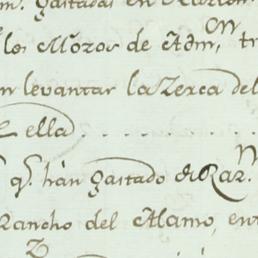 gastadas en
los Mozos de Adm.on
levantar la Zerca del
ella
q.e hán gastado de Rar.n
Rancho del Alamo, en